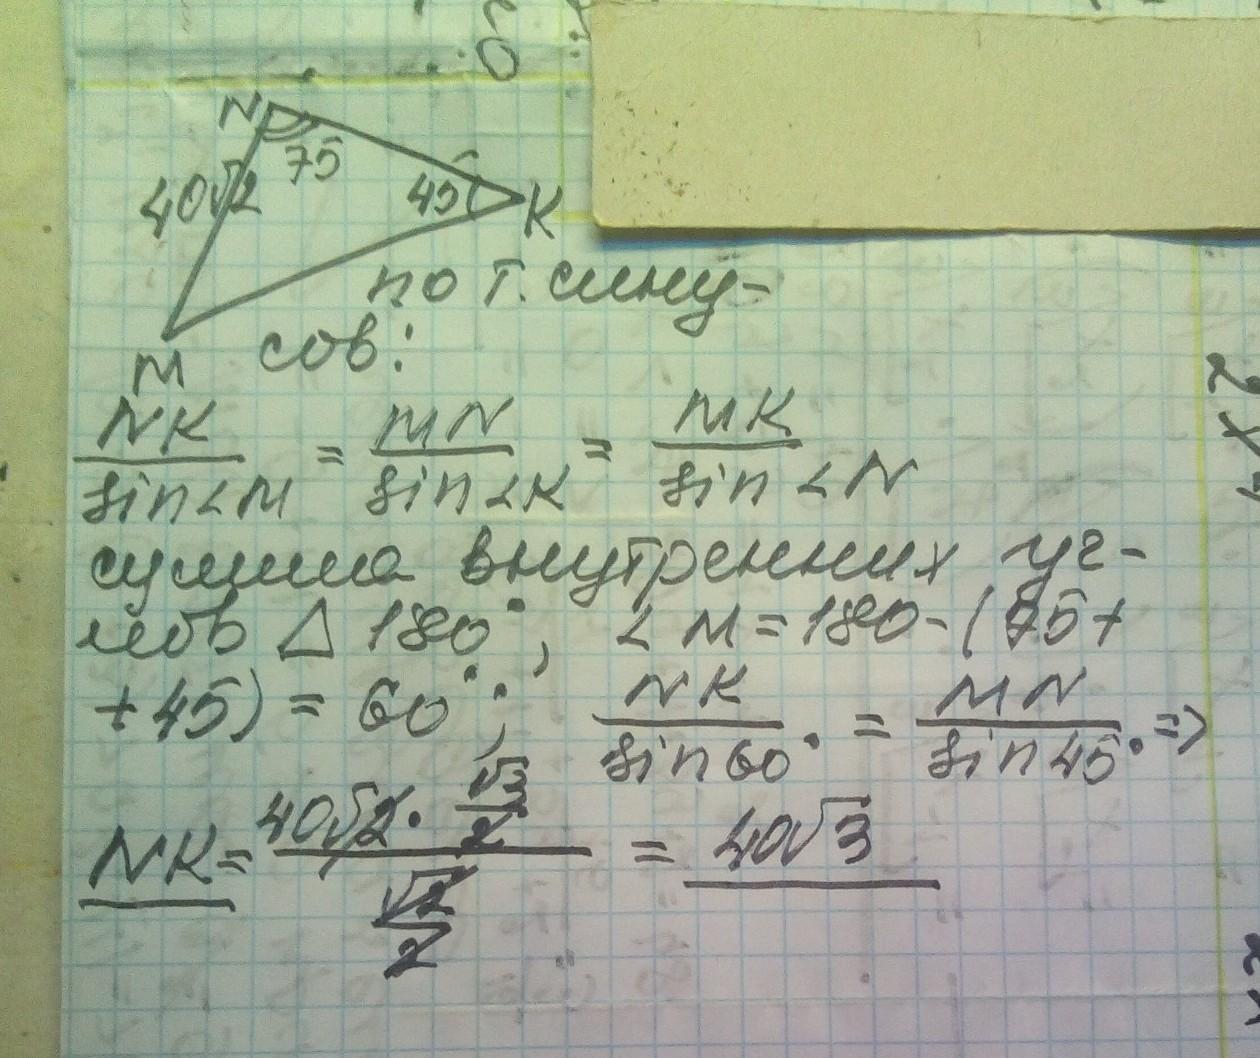 N
75
40√2
45
K
M
по т. сину-
сов:
NK/sin∠M = MN/sin∠K = MK/sin∠N
сумма внутренних уг-
лов △ 180°, ∠M=180-(75+
+45) = 60°; NK/sin60° = MN/sin45° =>
NK = (40√2 · √3/2)/(√2/2) = 40√3